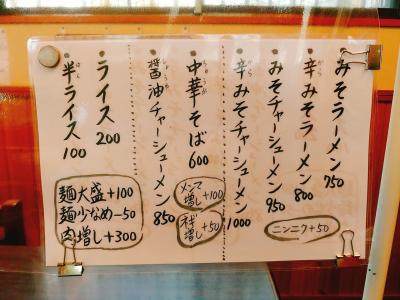 みそラーメン 750
辛みそラーメン 800
みそチャーシューメン 950
辛みそチャーシューメン 1000
ニンニク+50
中華そば 600
醤油チャーシューメン 850
メンマ増し +100
ネギ増し +50
ライス 200
半ライス 100
麺大盛+100
麺少なめ-50
肉増し+300